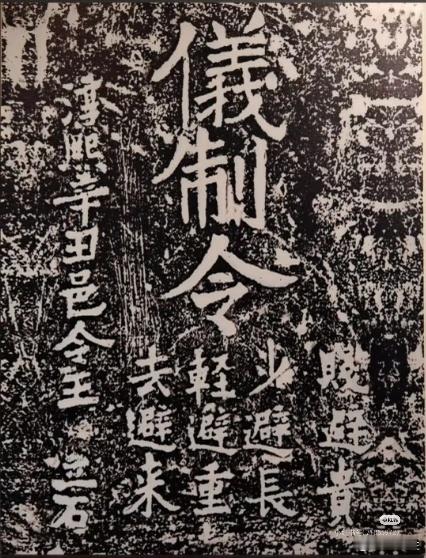 儀制令
賤避貴
少避長
軽避重
去避来
淳熙辛丑邑令王 立石